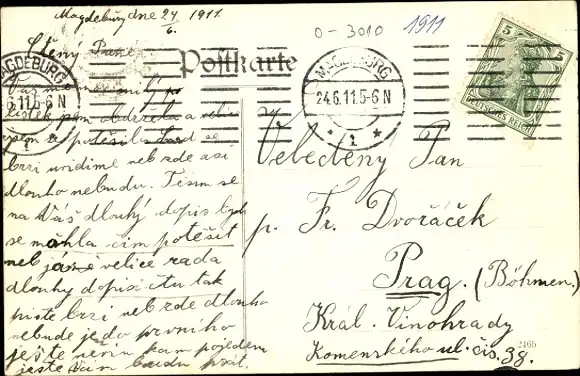 Magdeburg dne 24/6. 1911.
0-3010
1911
Ctěný Pane
Postkarte
MAGDEBURG
24.6.11.5-6N
*1*
MAGDEBURG
6.11.5-6N
5 5
DEUTSCHES REICH
lístek jsem obdržela a velice
jsem
brzi uvidíme neb zde asi
dlouho nebudu. Těším se
na Váš dlouhý dopis
se mohla čím potěšit
neb já velice ráda
dlouhý dopisi čtu tak
pište brzi neb zde dlouho
nebude je do prvního
ještě nevím kam pojedem
ještě Vám budu psát.
Velectěný Pan
p. Fr. Dvořáček
Prag. (Böhmen.)
Král. Vinohrady
Komenského ul. čís. 38.